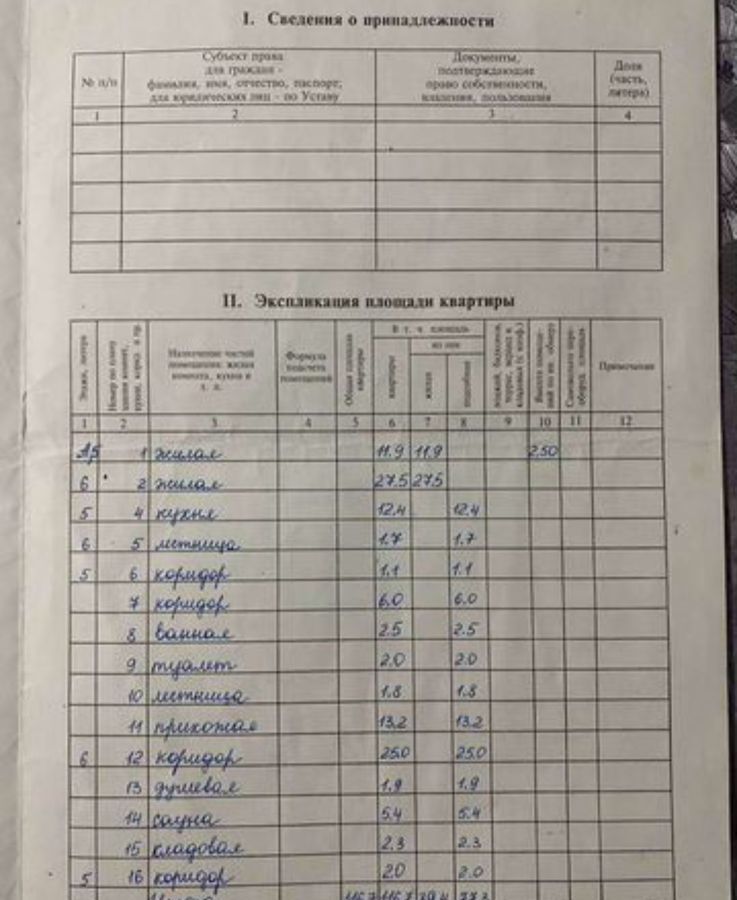 I. Сведения о принадлежности
№ п/п
Субъект права
для граждан -
фамилия, имя, отчество, паспорт;
для юридических лиц - по Уставу
Документы,
подтверждающие
право собственности,
владения, пользования
Доля
(часть,
литера)
1 2 3 4
II. Экспликация площади квартиры
Этажи, литера
Номер по плану
Назначение частей
помещения: жилая
комната, кухня и
т. п.
Формула
подсчета
помещений
Общая площадь
квартиры
В т. ч. площадь
квартиры
из нее
жилая
подсобная
Примечания
1 2 3 4 5 6 7 8 9 10 11 12
А5 1 жилая 11.9 11.9 2.50
6 2 жилая 27.5 27.5
5 4 кухня 12.4 12.4
6 5 лестница 1.7 1.7
5 6 коридор 1.1 1.1
7 коридор 6.0 6.0
8 ванная 2.5 2.5
9 туалет 2.0 2.0
10 лестница 1.8 1.8
11 прихожая 13.2 13.2
6 12 коридор 25.0 25.0
13 душевая 1.9 1.9
14 сауна 5.4 5.4
15 кладовая 2.3 2.3
5 16 коридор 2.0 2.0